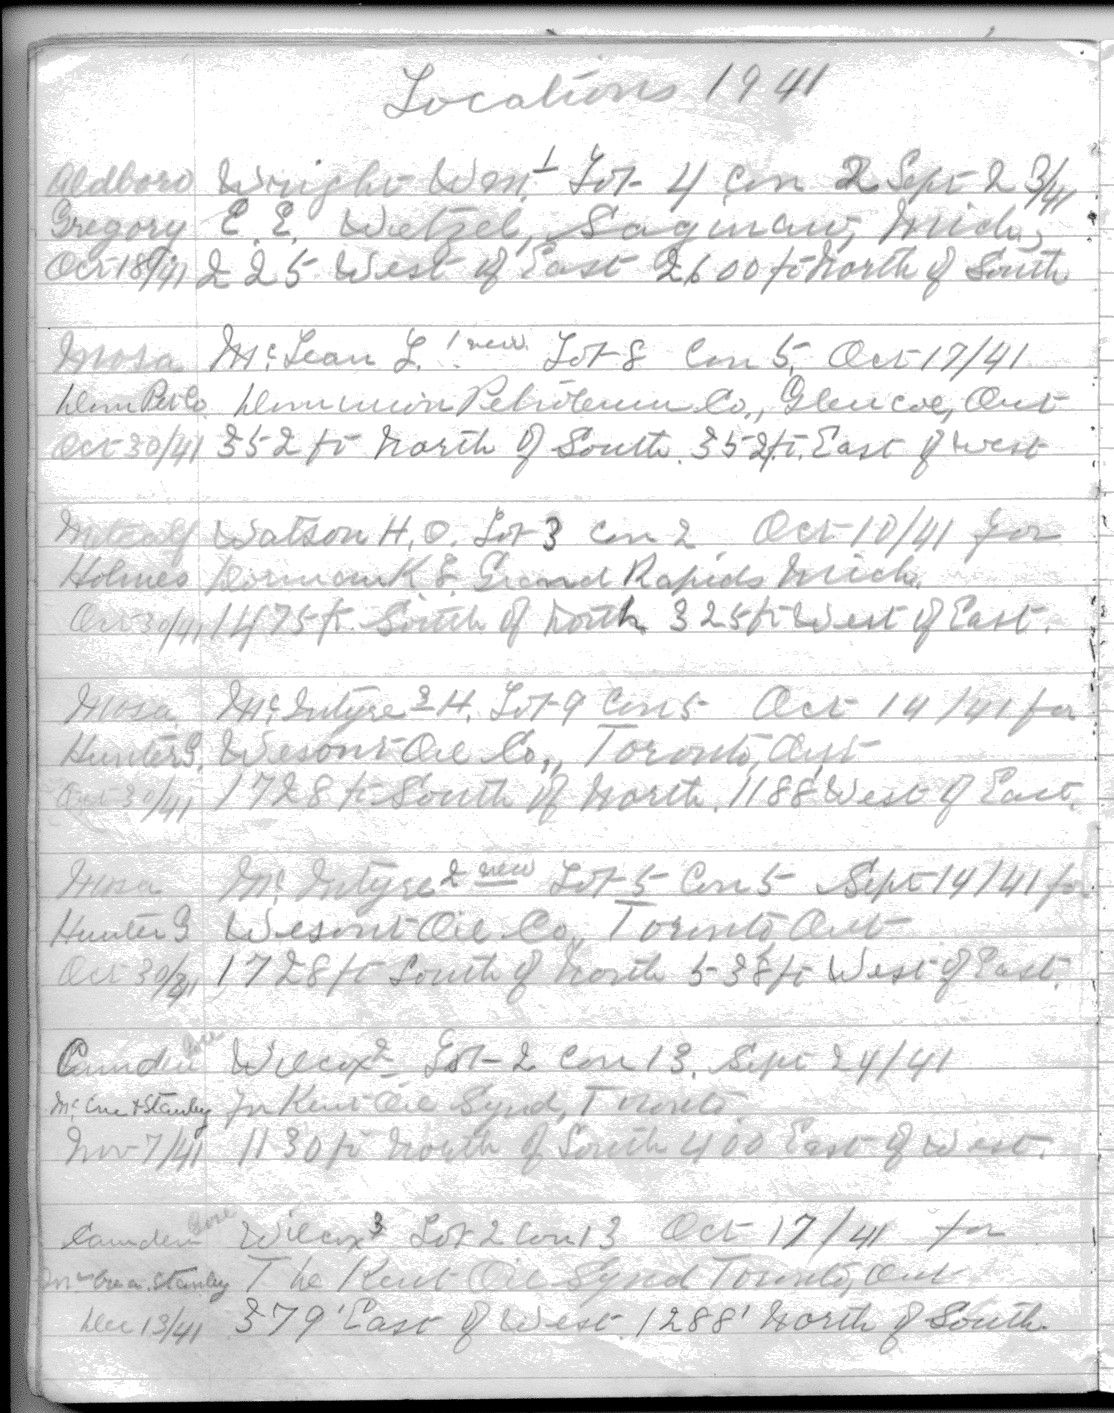 Locations 1941
Aldboro Wright Wm 1 Lot 4 Con 2 Sept 23/41
Gregory E. E. Wetzel, Saginaw, Mich,
Oct 18/41 225 West of East 2600 ft North of South
Mosa McLean L. 1 new Lot 8 Con 5, Oct 17/41
Dom Pet Co. Dominion Petroleum Co., Glencoe, Ont
Oct 30/41 352 ft North of South. 352 ft. East of West
Metcalf Watson H. O. Lot 3 Con 2. Oct 10/41 for
Holmes Dorman K & Grand Rapids Mich.
Oct 30/41 1475 ft. South of North 325 ft West of East.
Mosa McIntyre 3 H. Lot 9 Con 5 Oct 14/41 for
Hunter G. Wesont Oil Co., Toronto, Ont
Oct 30/41 1728 ft South of North. 1188 West of East.
Mosa McIntyre 2 new Lot 5 Con 5 Sept 14/41 for
Hunter G Wesont Oil Co., Toronto, Ont
Oct 30/41 1728 ft South of North 538 ft West of East.
Camden Gore Wilcox 2 Lot 2 Con 13. Sept 24/41
& Stanley for Kent Oil Synd, Toronto.
Nov 7/41 1130 ft North of South 400 East of West.
Camden Gore Wilcox 3 Lot 2 Con 13 Oct 17/41 for
Stanley The Kent Oil Synd Toronto, Ont
Dec 13/41 379' East of West. 1288' North of South.